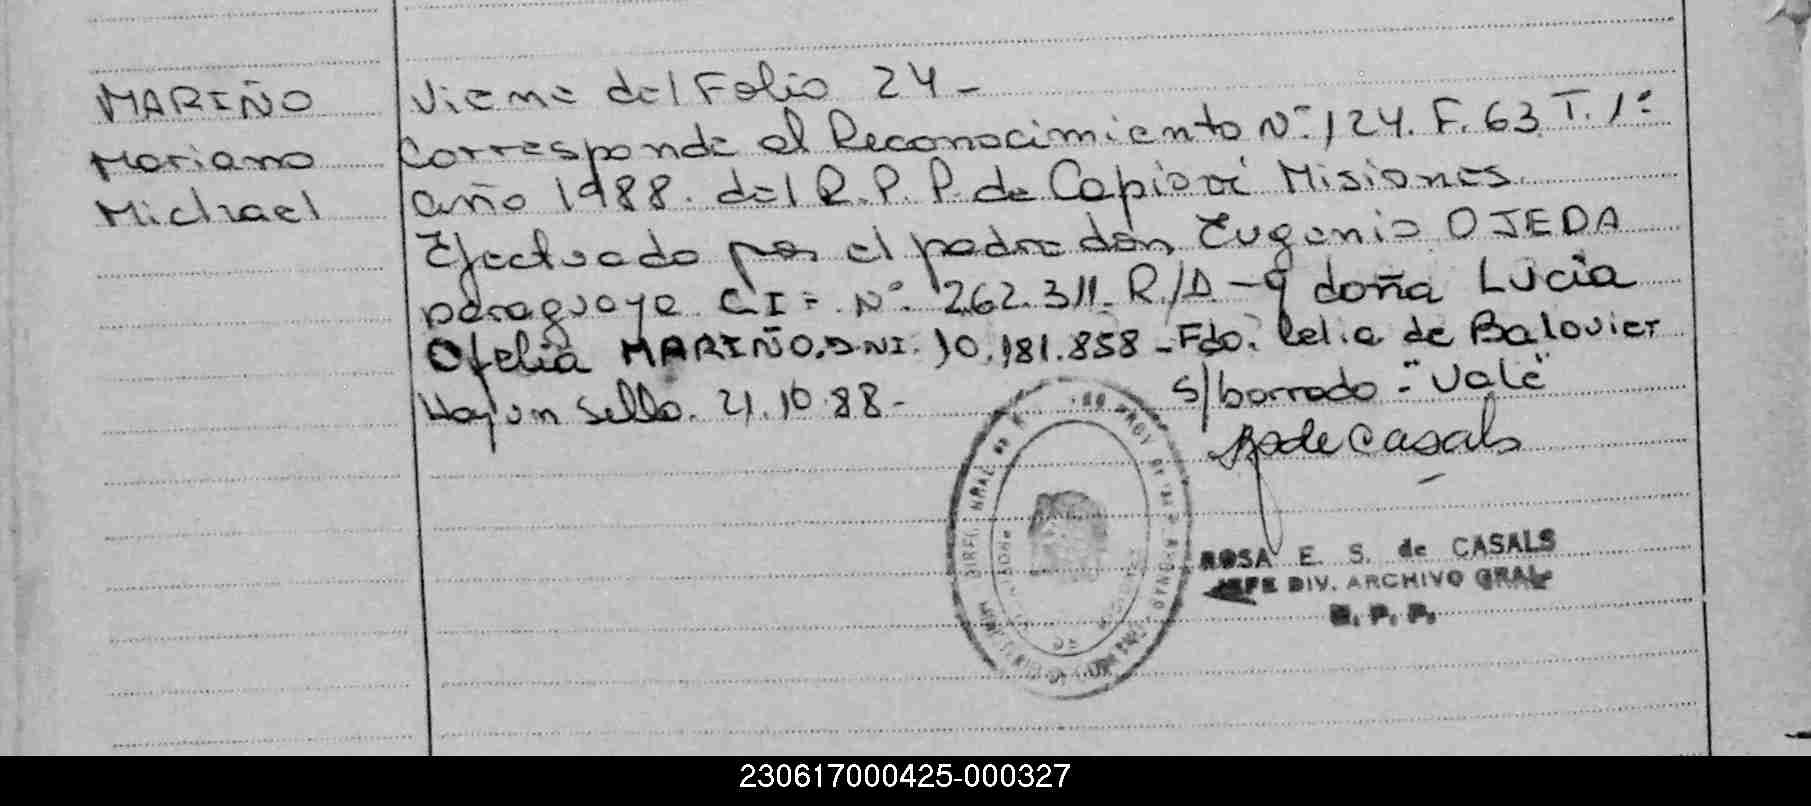 MARIÑO
Mariano
Michael
Viene del Folio 24-
Corresponde al Reconocimiento Nº 124. F. 63 T. 1º
año 1988. del R.P.P. de Capioví Misiones.
Efectuado por el padre don Eugenio OJEDA
paraguayo C I = Nº 262.311. R/A - y doña Lucia
Ofelia MARIÑO. DNI. 10.181.858 - Fdo. Lelia de Balovier
Hay un sello. 21.10.88- s/borrado - "Vale"
de Casals
ROSA E. S. de CASALS
JEFE DIV. ARCHIVO GRAL
R. P. P.
230617000425-000327